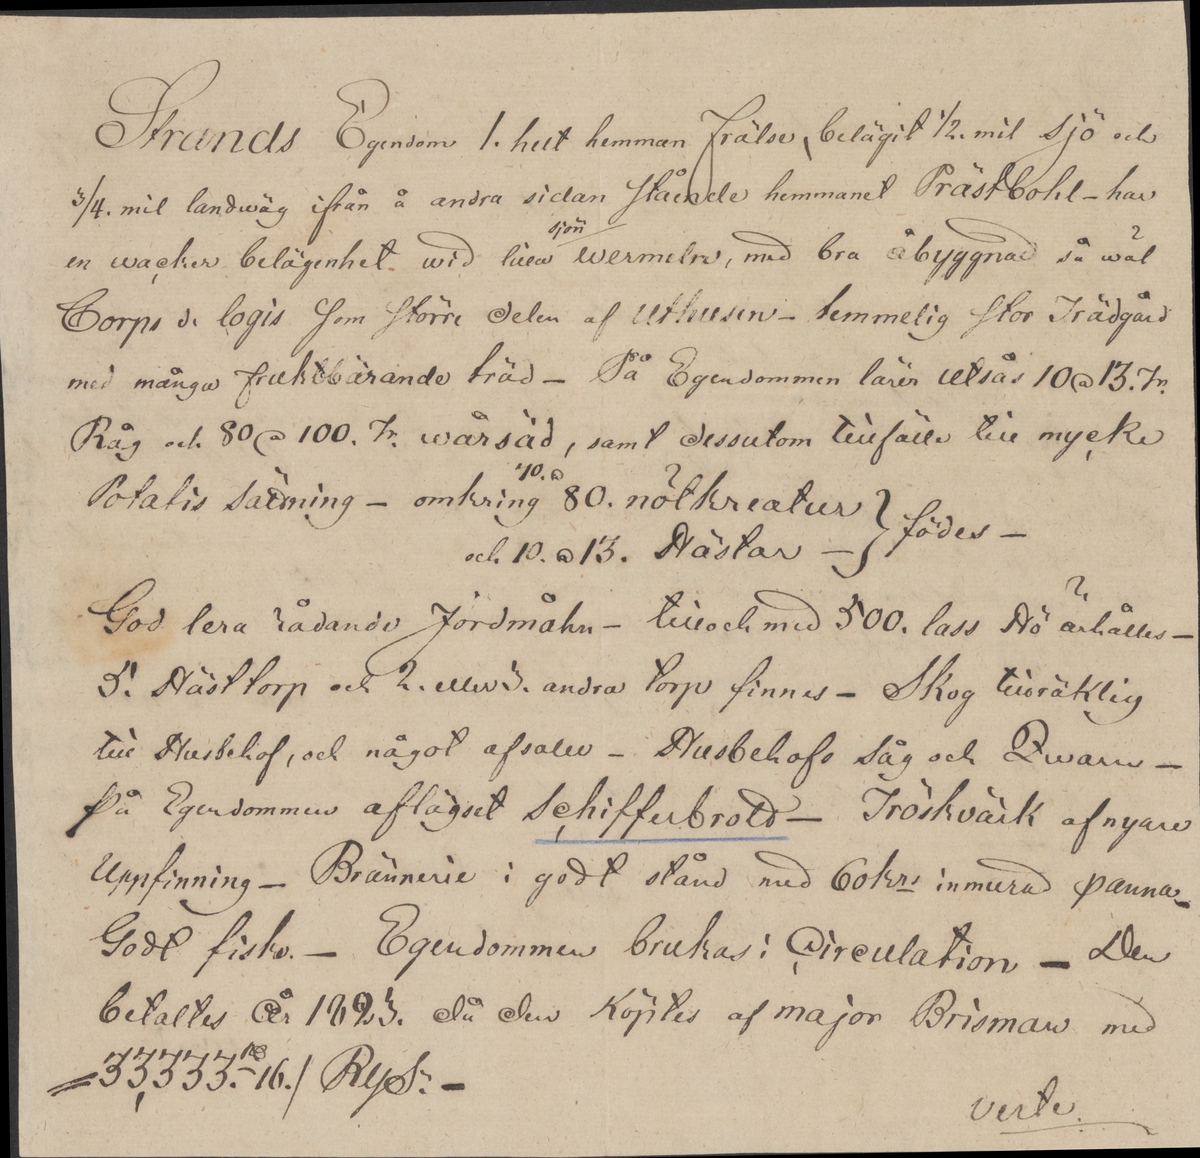 Strands Egendom 1. helt hemman frälse, belägit 1/2. mil sjö och
3/4. mil landwäg ifrån å andra sidan stående hemmanet Prästbohl – har
en wacker belägenhet wid lilla sjön Wermeln, med bra åbyggnad så wäl
Corps de logis som större delen af Uthusen – temmelig stor Trädgård
med många fruktbärande träd – På Egendommen lärer utsås 10 @ 13. Tr.
Råg och 80 @ 100. Tr. wårsäd, samt dessutom tillfälle till mycke
Potatis sättning – omkring 70. @ 80. nötkreatur
och 10. @ 13. Hästar – } födes –
God lera rådande Jordmåhn – till och med 500. lass Hö ärhålles –
5. Hästtorp och 2. eller 3. andra torp finnes – Skog tillräklig
till Husbehof, och något afsalu – Husbehofs Såg och Qwarn –
På Egendommen aflägset Schifferbrott – Tröskvärk af nyare
Uppfinning – Brännerie i godt stånd med 60 krs inmurad panna –
Godt fiske. – Egendommen brukas i Circulation – Den
betaltes År 1823. då den köptes af major Brisman med
33,333. 16./ RgS. –
verte.